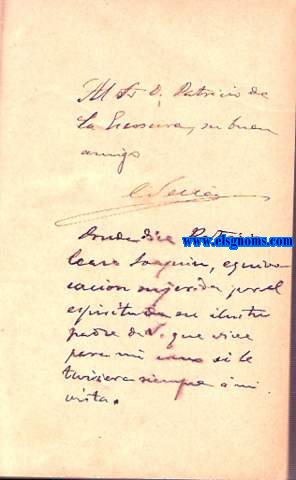 Al Sr D. Patricio de
la Escosura, su buen
amigo
www.elsgnoms.com
Donde dice Patricio
léase Joaquin, equivo
cacion sujerida por el
espiritu de su ilustre
padre de V. que vive
para mi como si le
tuviera siempre á mi
vista.